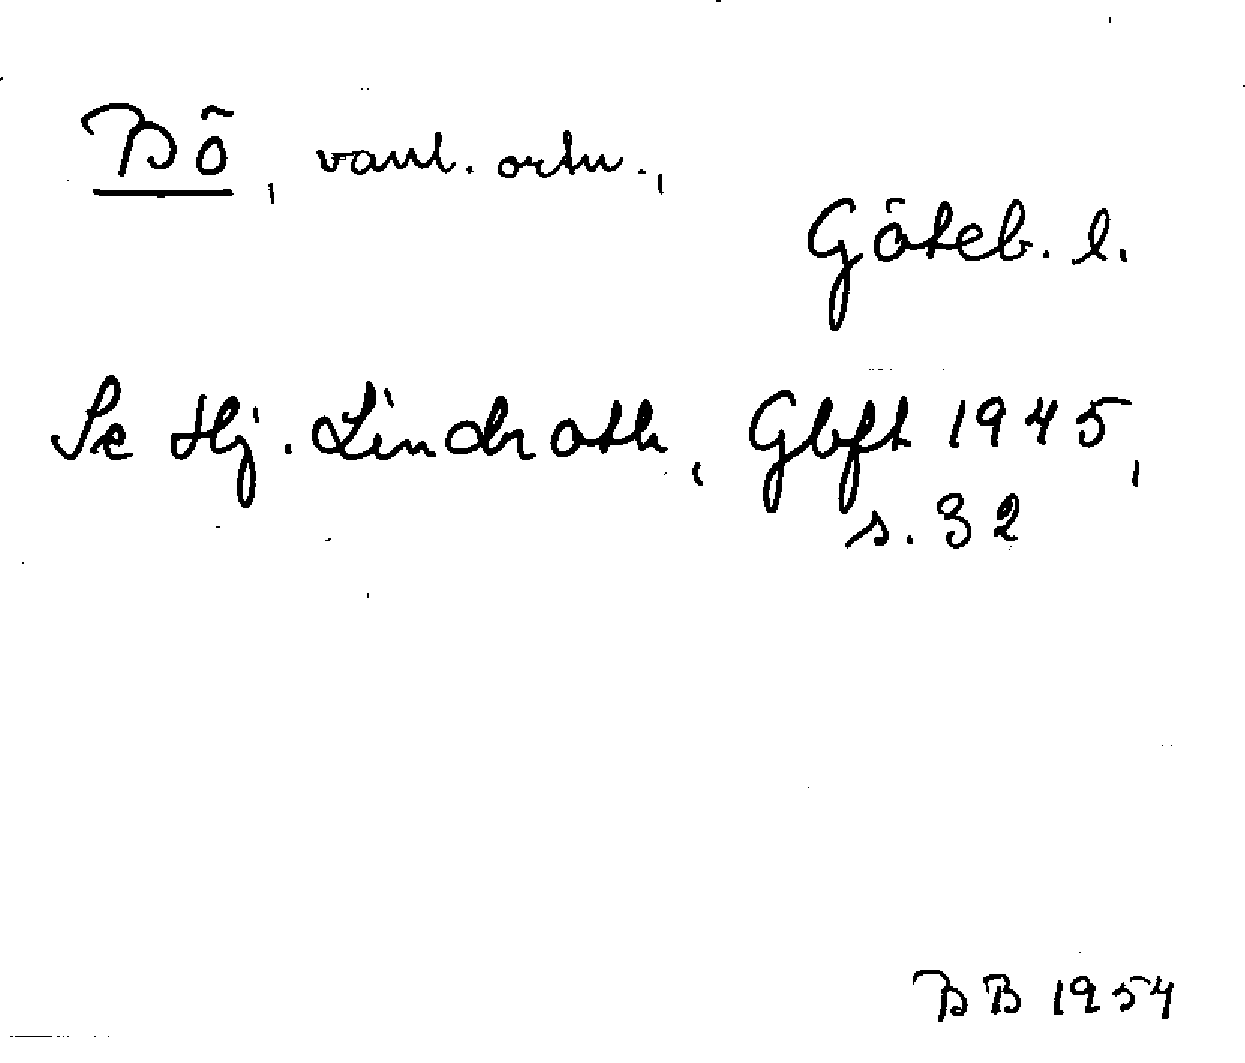 Bö, vanl. ortn.,
Göteb. l.
Se Hj. Lindroth, Gbgft 1945,
s. 32
BB 1954